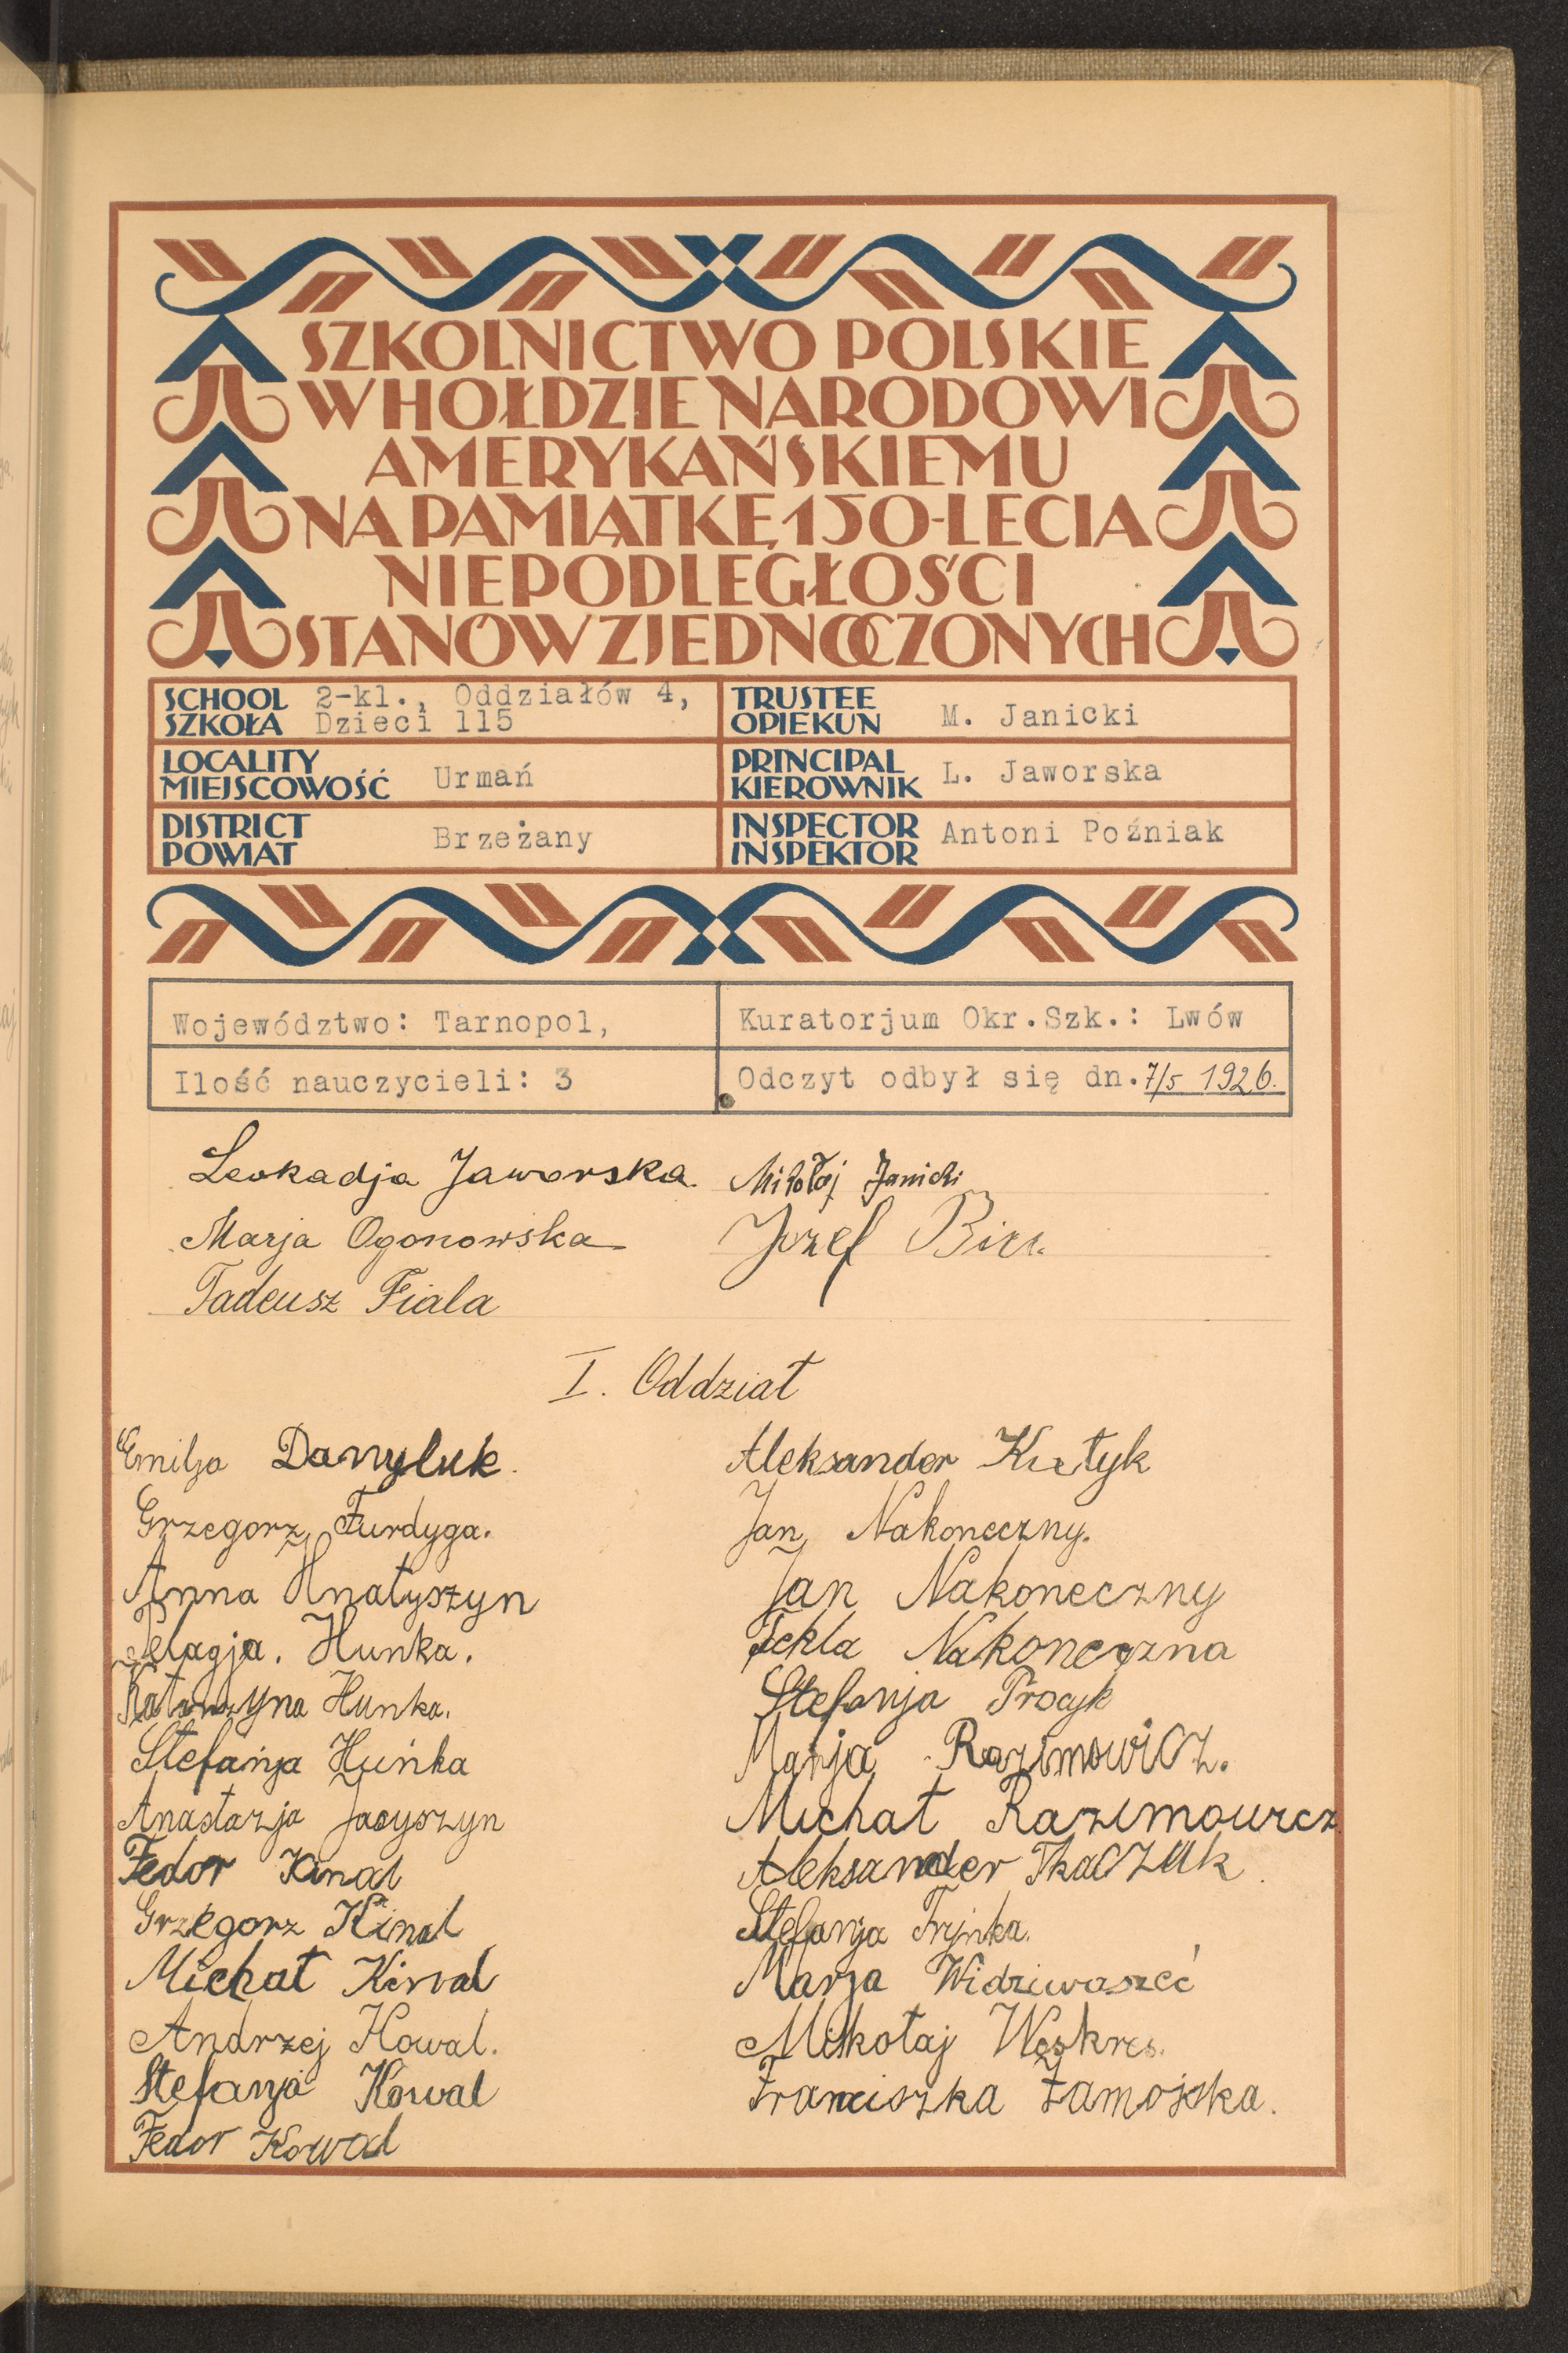 SZKOLNICTWO POLSKIE
W HOŁDZIE NARODOWI
AMERYKAŃSKIEMU
NA PAMIĄTKĘ 150-LECIA
NIEPODLEGŁOŚCI
STANÓW ZJEDNOCZONYCH
SCHOOL SZKOŁA 2-kl., Oddziałów 4, Dzieci 115
TRUSTEE OPIEKUN M. Janicki
LOCALITY MIEJSCOWOŚĆ Urmań
PRINCIPAL KIEROWNIK L. Jaworska
DISTRICT POWIAT Brzeżany
INSPECTOR INSPEKTOR Antoni Poźniak
Województwo: Tarnopol,
Kuratorjum Okr.Szk.: Lwów
Ilość nauczycieli: 3
Odczyt odbył się dn. 7/5 1926.
Leokadja Jaworska.
Marja Ogonowska
Tadeusz Fiala
Mikołaj Janicki
Józef
I. Oddział
Emilja Danyluk.
Grzegorz Furdyga.
Anna Hnatyszyn
Pelagja. Hunka.
Katarzyna Hunka.
Stefanja Huńka
Anastazja Jacyszyn
Fedor Kinal
Grzegorz Kinal
Michał Kinal
Andrzej Kowal.
Stefanja Kowal
Fedor Kowal
Aleksander
Jan Nakoneczny.
Jan Nakoneczny
Tekla Nakoneczna
Stefanja Procyk
Marja Razimowicz.
Michał Razimowicz
Aleksander Tkaczuk
Stefanja Trynka.
Marja
Mikołaj Woskres.
Franciszka Zamojska.